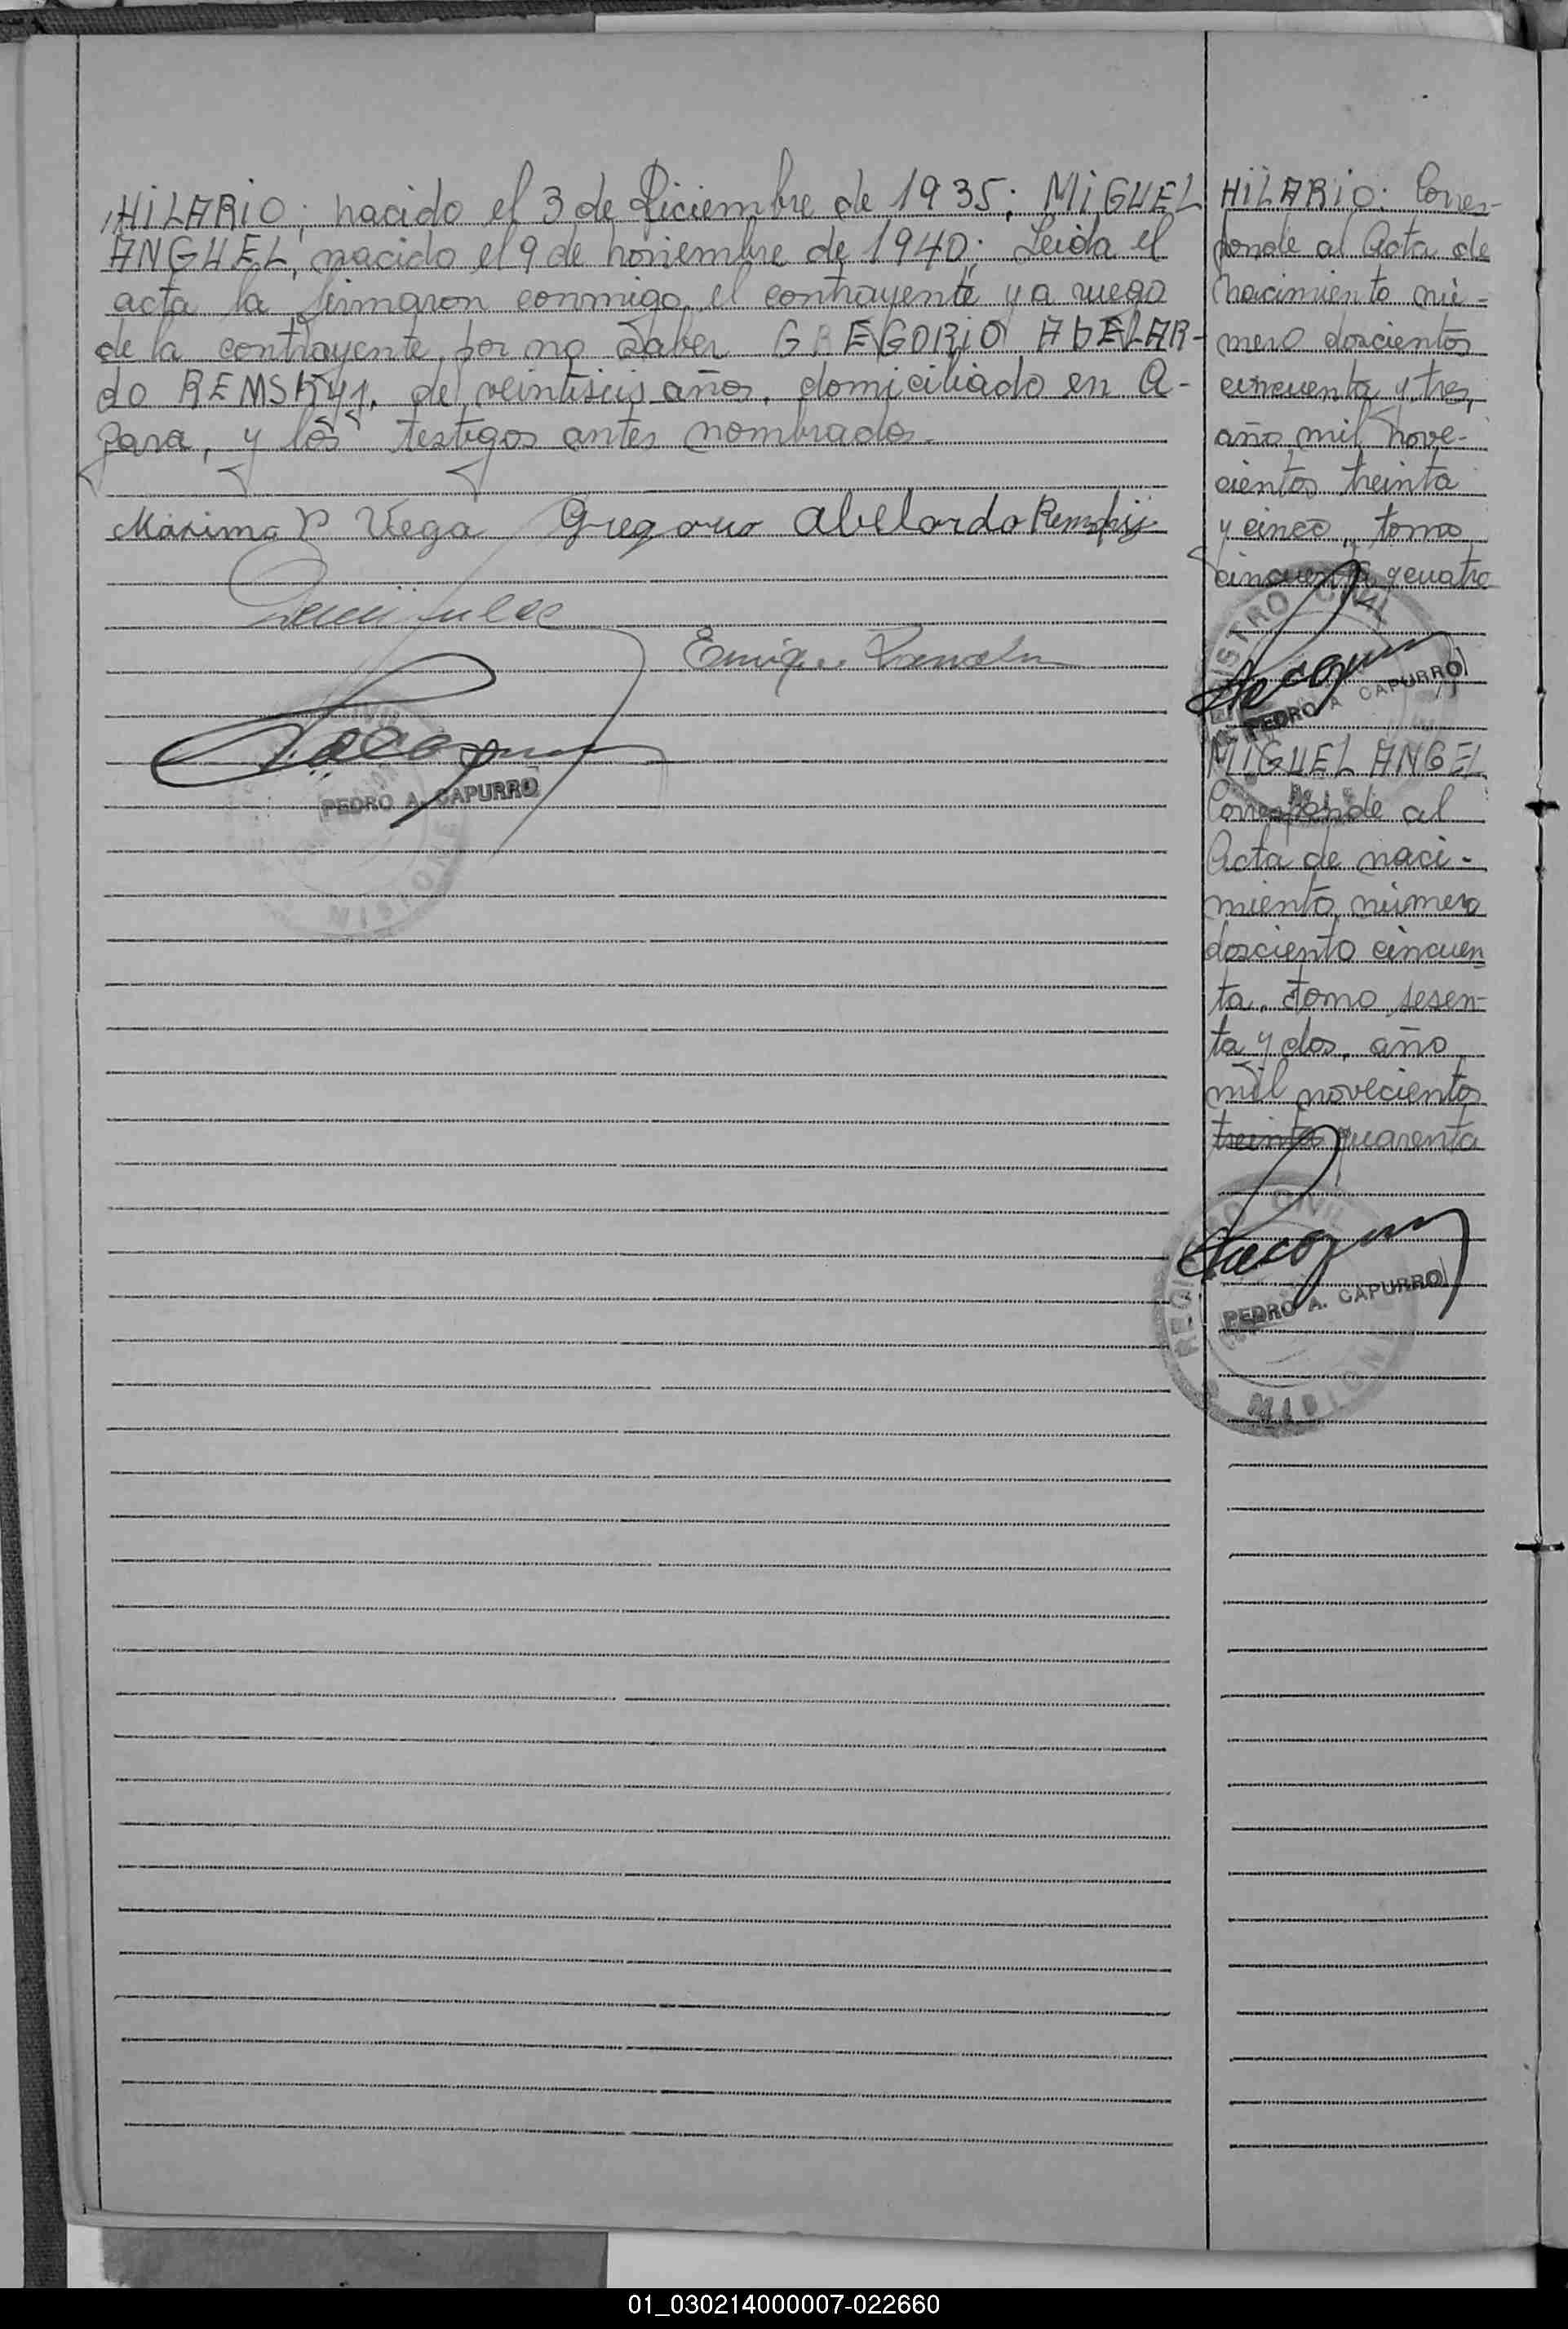 HILARIO; nacido el 3 de Diciembre de 1935; MIGUEL
ANGUEL, nacido el 9 de noviembre de 1940; Leida el
acta la firmaron conmigo, el contrayente y a ruego
de la contrayente por no saber GREGORIO ABELAR-
do REMSKYJ, de veintiseis años, domiciliado en A-
para, y los testigos antes nombrados.
Maximo P Vega Gregorio Abelardo Remskij
Enrique
PEDRO A. CAPURRO
MISIONE
HILARIO: Corres-
ponde al Acta de
Nacimiento nú-
mero doscientos
cincuenta y tres,
año mil nove-
cientos treinta
y cinco, tomo
cincuenta y cuatro
REGISTRO CIVIL
PEDRO A CAPURRO
MIGUEL ANGEL
Corresponde al
Acta de naci-
miento número
dosciento cincuen
ta, tomo sesen-
ta y dos, año
mil novecientos
treinta cuarenta
REGISTRO CIVIL
PEDRO A. CAPURRO
MISIONE
01_030214000007-022660